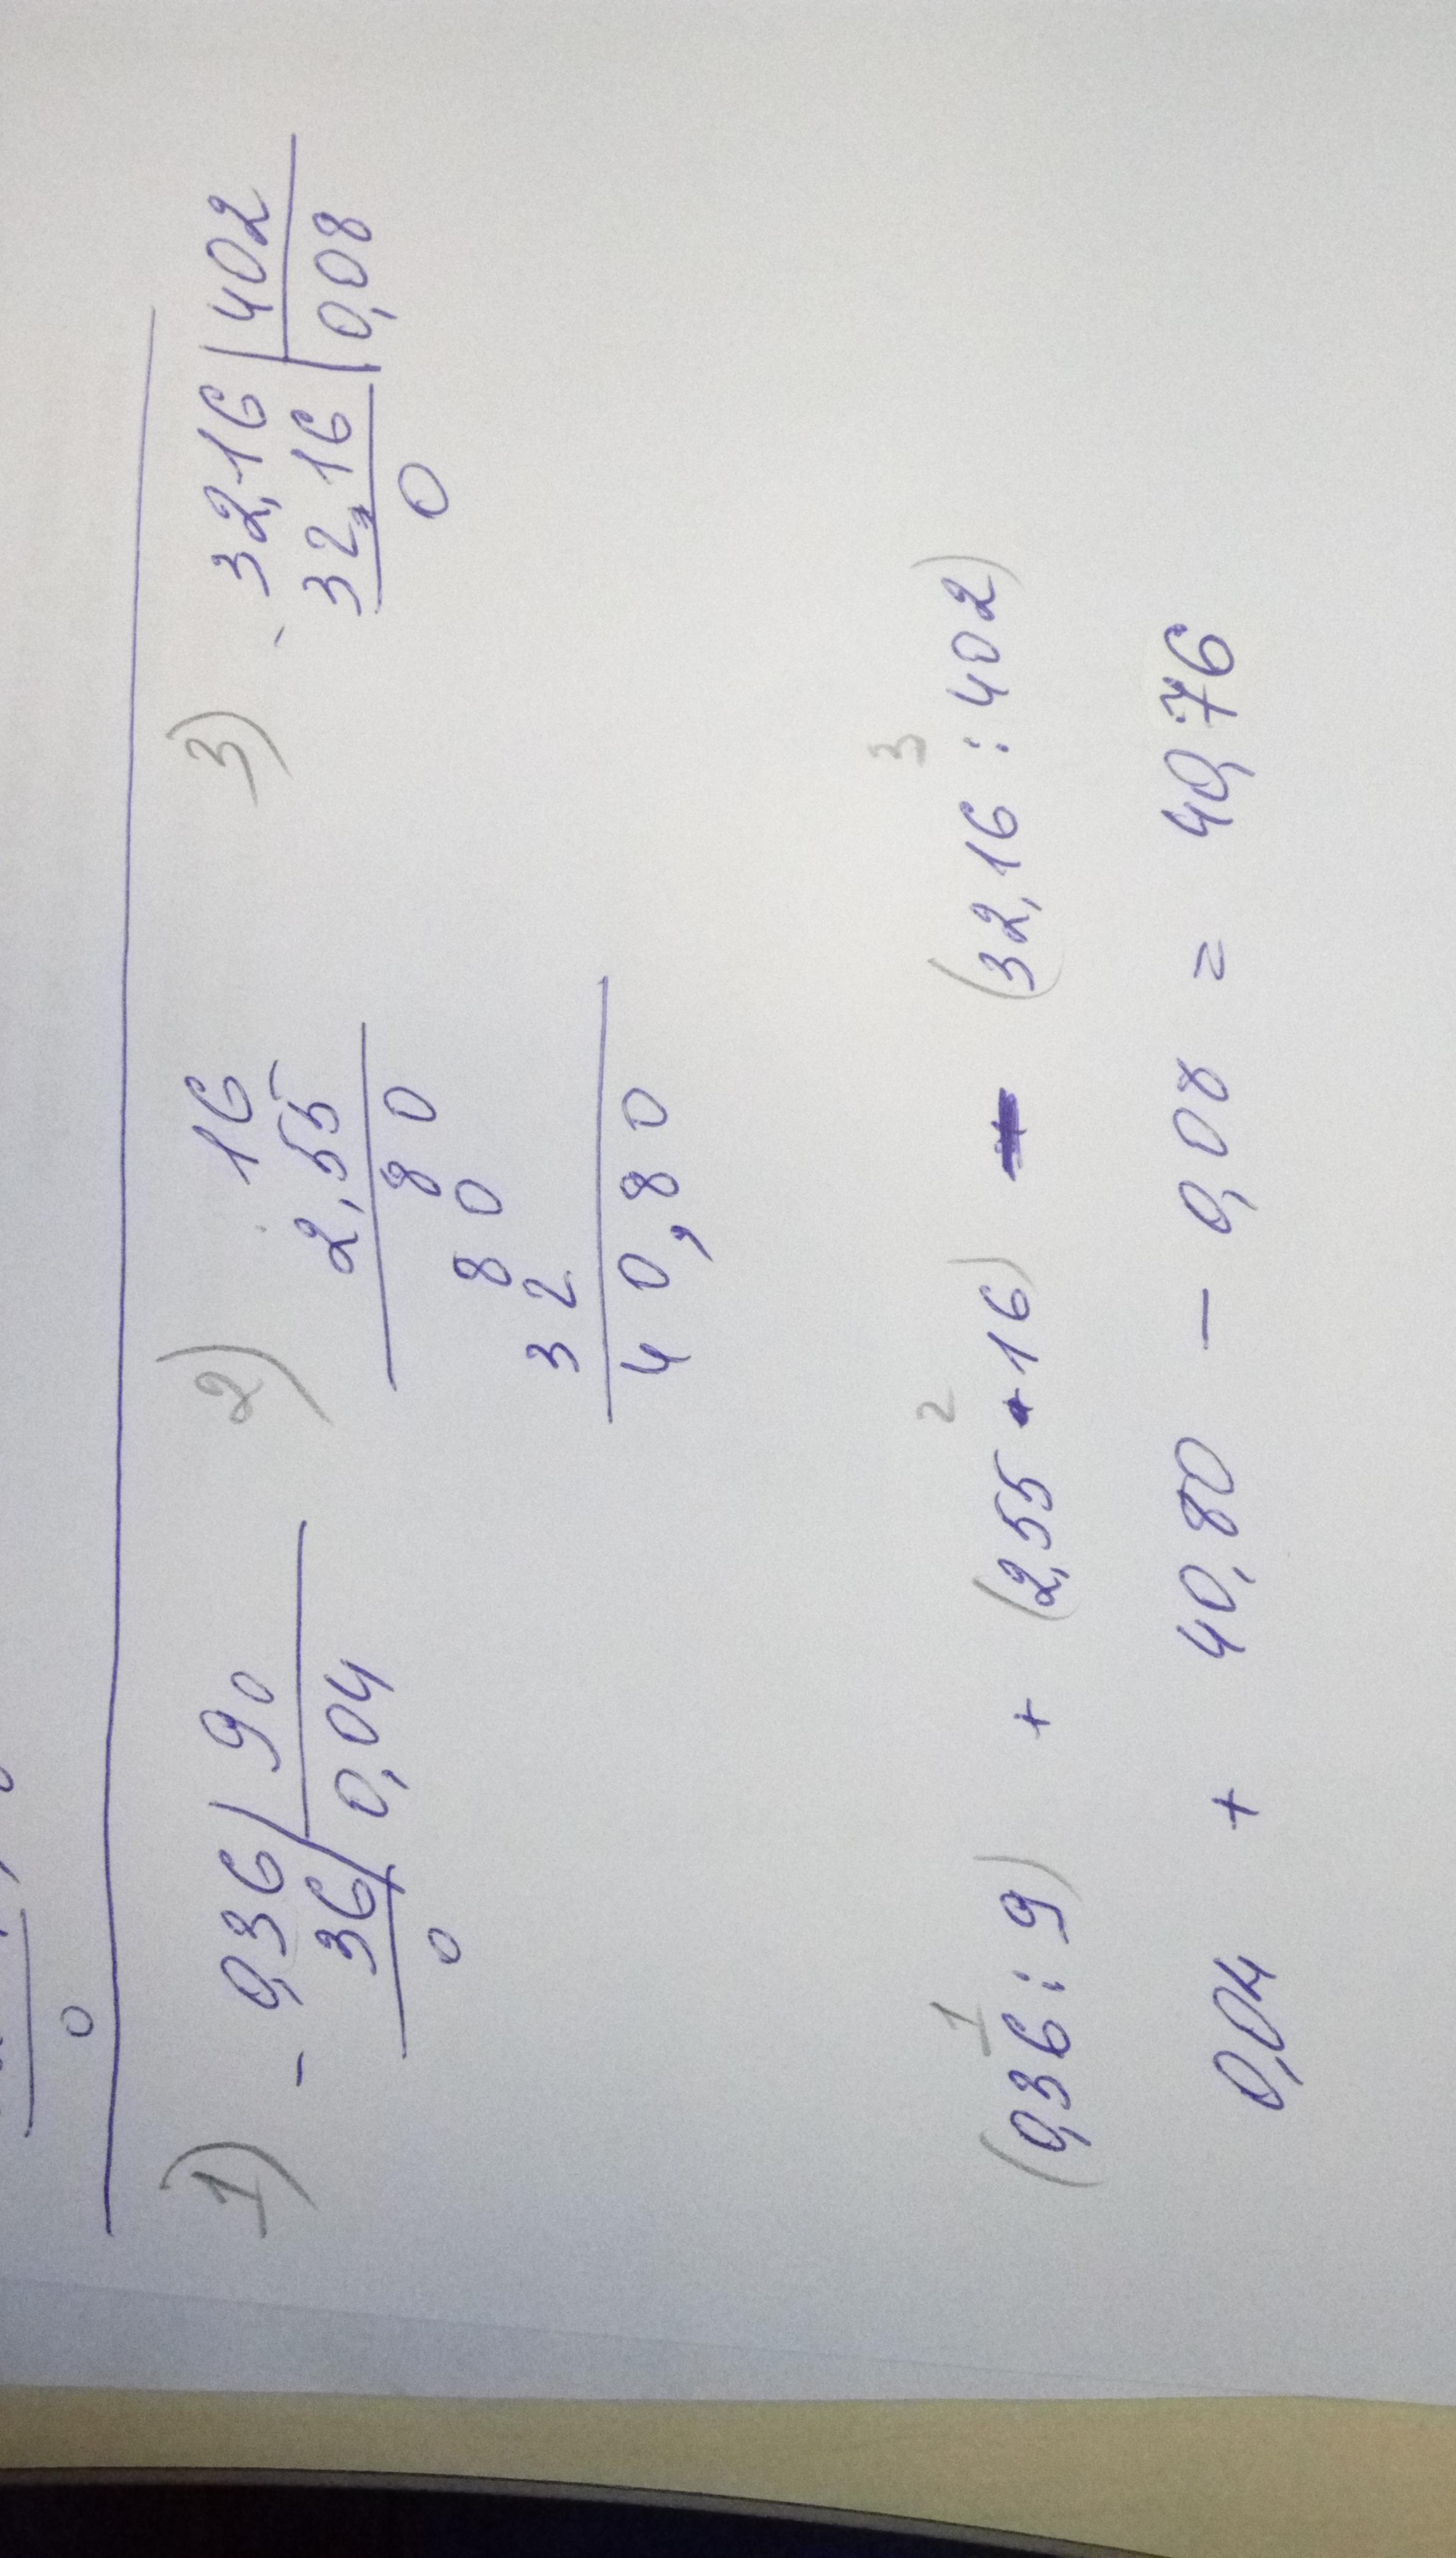 0
1) - 0,36 | 90
36 | 0,04
0
2) 16
2,55
80
80
32
40,80
3) - 32,16 | 402
32,16 | 0,08
0
1 2 3
(0,36 : 9) + (2,55 · 16) - (32,16 : 402)
0,04 + 40,80 - 0,08 = 40,76